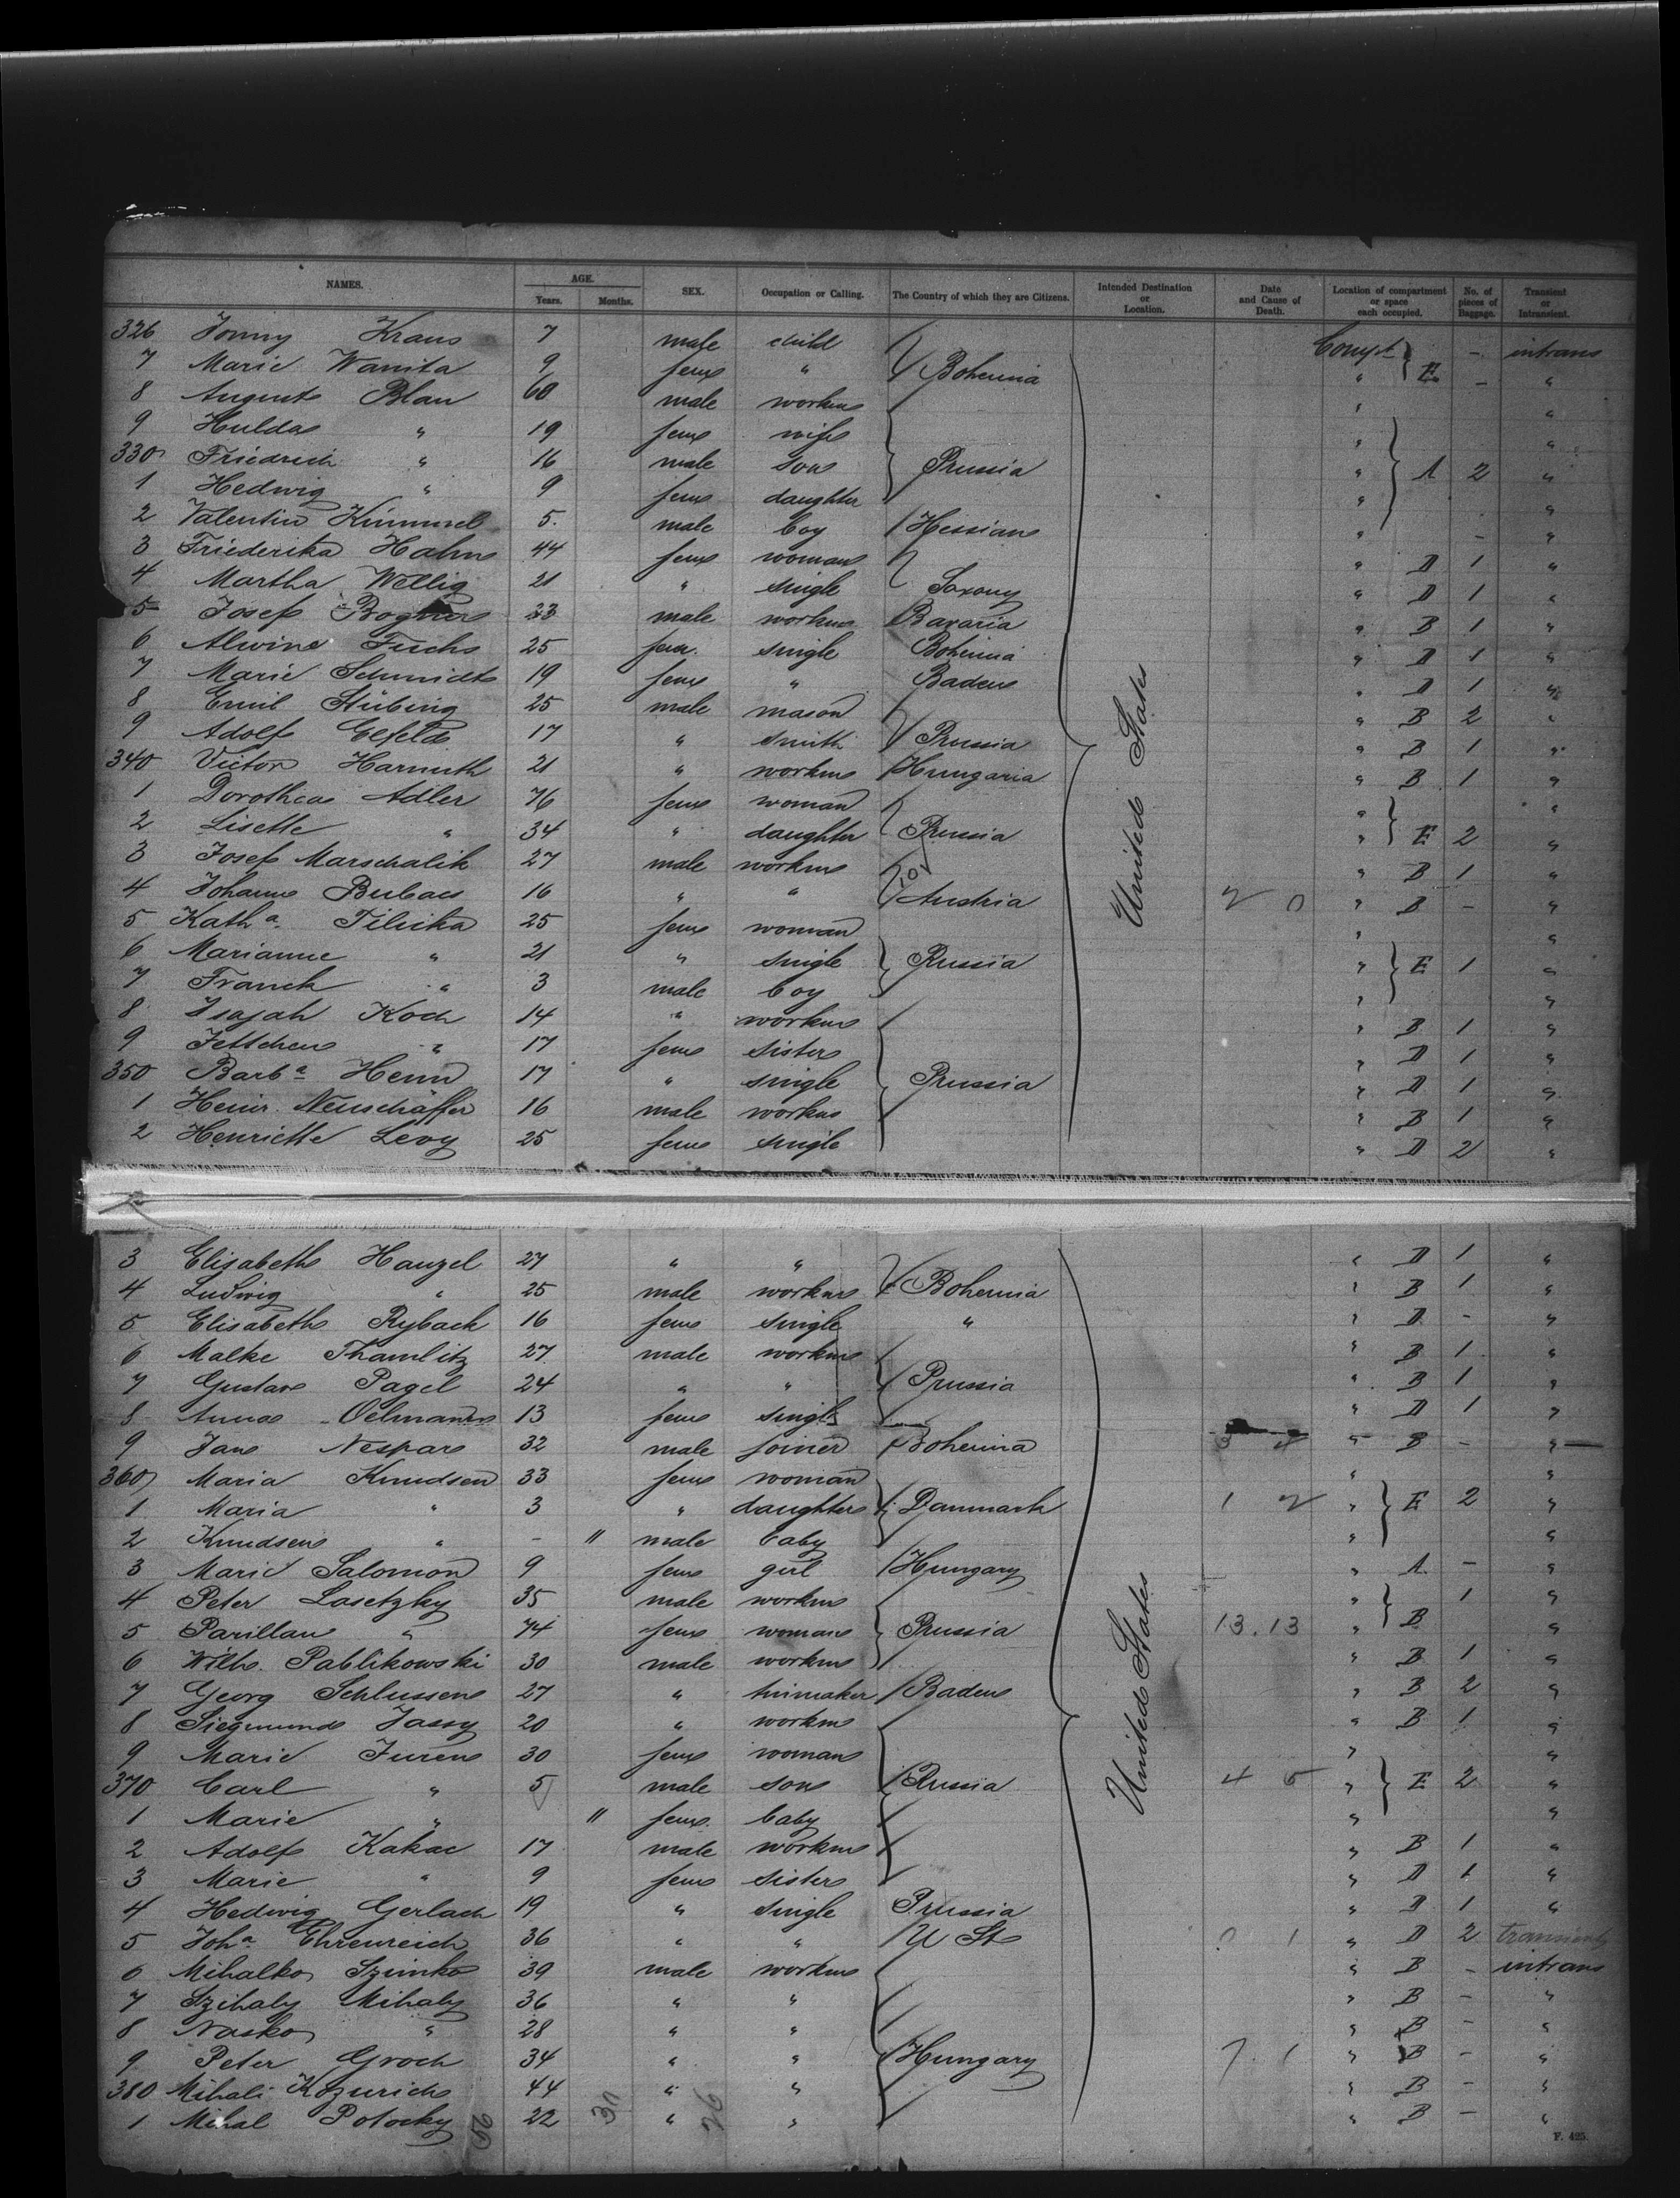 NAMES. AGE. Years. Months. SEX. Occupation or Calling. The Country of which they are Citizens. Intended Destination or Location. Date and Cause of Death. Location of compartment or space each occupied. No. of pieces of Baggage. Transient or Intransient.
326 Kraus 7 male child Compt - intrans
7 Marie Wanita 9 fem " Bohemia " E - "
8 August Blau 60 male workm " "
9 Hulda " 19 fem wife " "
330 Friedrich " 16 male son Prussia " A 2 "
1 Hedwig " 9 fem daughter " "
2 Valentin Kimmel 5 male boy Hessian " - "
3 Friederika Hahn 44 fem woman " D 1 "
4 Martha Wellig 21 " single Saxony " D 1 "
5 Josef Bogner 23 male workm Bavaria " B 1 "
6 Alwine Fuchs 25 fem. single Bohemia " D 1 "
7 Marie Schmidt 19 fem " Baden " D 1 "
8 Emil Stübing 25 male mason " B 2 "
9 Adolf 17 " smith Prussia " B 1 "
340 Victor Harmuth 21 " workm Hungaria " B 1 "
1 Dorothea Adler 76 fem woman " "
2 Lisette " 34 " daughter Prussia " E 2 "
3 Josef Marschalik 27 male workm " B 1 "
4 Johann 16 " " Austria 2 0 " B - "
5 Katha 25 fem woman " "
6 Marianne " 21 " single Russia " E 1 "
7 Franck " 3 male boy " "
8 Isajah Koch 14 " workm " B 1 "
9 Jettchen " 17 fem sister " D 1 "
350 Barba Henn 17 " single Prussia " D 1 "
1 Heinr. Neuschäffer 16 male workm " B 1 "
2 Henriette Levy 25 fem single " D 2 "
United States
3 Elisabeth Hanzel 27 " " " D 1 "
4 Ludwig " 25 male workm Bohemia " B 1 "
5 Elisabeth Ryback 16 fem single " " D - "
6 Malke Thamlitz 27 male workm " B 1 "
7 Gustav Pagel 24 " " Prussia " B 1 "
8 Anna Oelmann 13 fem single " D 1 "
9 Jan Nespar 32 male joiner Bohemia 3 4 " B - "
360 Maria Knudsen 33 fem woman " "
1 Maria " 3 " daughter Danmark 1 2 " E 2 "
2 Knudsen " - 11 male baby " "
3 Marie Salomon 9 fem girl Hungary " A - "
4 Peter Lasetzky 35 male workm " 1 "
5 " 74 fem woman Prussia 13. 13 " B "
6 Wilh. Pablikowski 30 male workm " B 1 "
7 Georg Schlussen 27 " Baden " B 2 "
8 Siegmund Jassy 20 " workm " B 1 "
9 Marie Furen 30 fem woman " "
370 Carl " 5 male son Russia 4 5 " E 2 "
1 Marie " 11 fem. baby " "
2 Adolf Kakac 17 male workm " B 1 "
3 Marie " 9 fem sister " D 1 "
4 Hedwig Gerlach 19 " single Prussia " D 1 "
5 Joha Ehrenreich 36 " " U St 0 1 " D 2 transient
6 Mihalko Szimko 39 male workm " B - intrans
7 Szihaly Mihaly 36 " " " B - "
8 Nasko " 28 " " " B - "
9 Peter Groch 34 " " Hungary 7. 1 " B - "
380 Mihali Kozurich 44 " " " B - "
1 Mihal Potocky 22 " " " B - "
United States
F. 425.